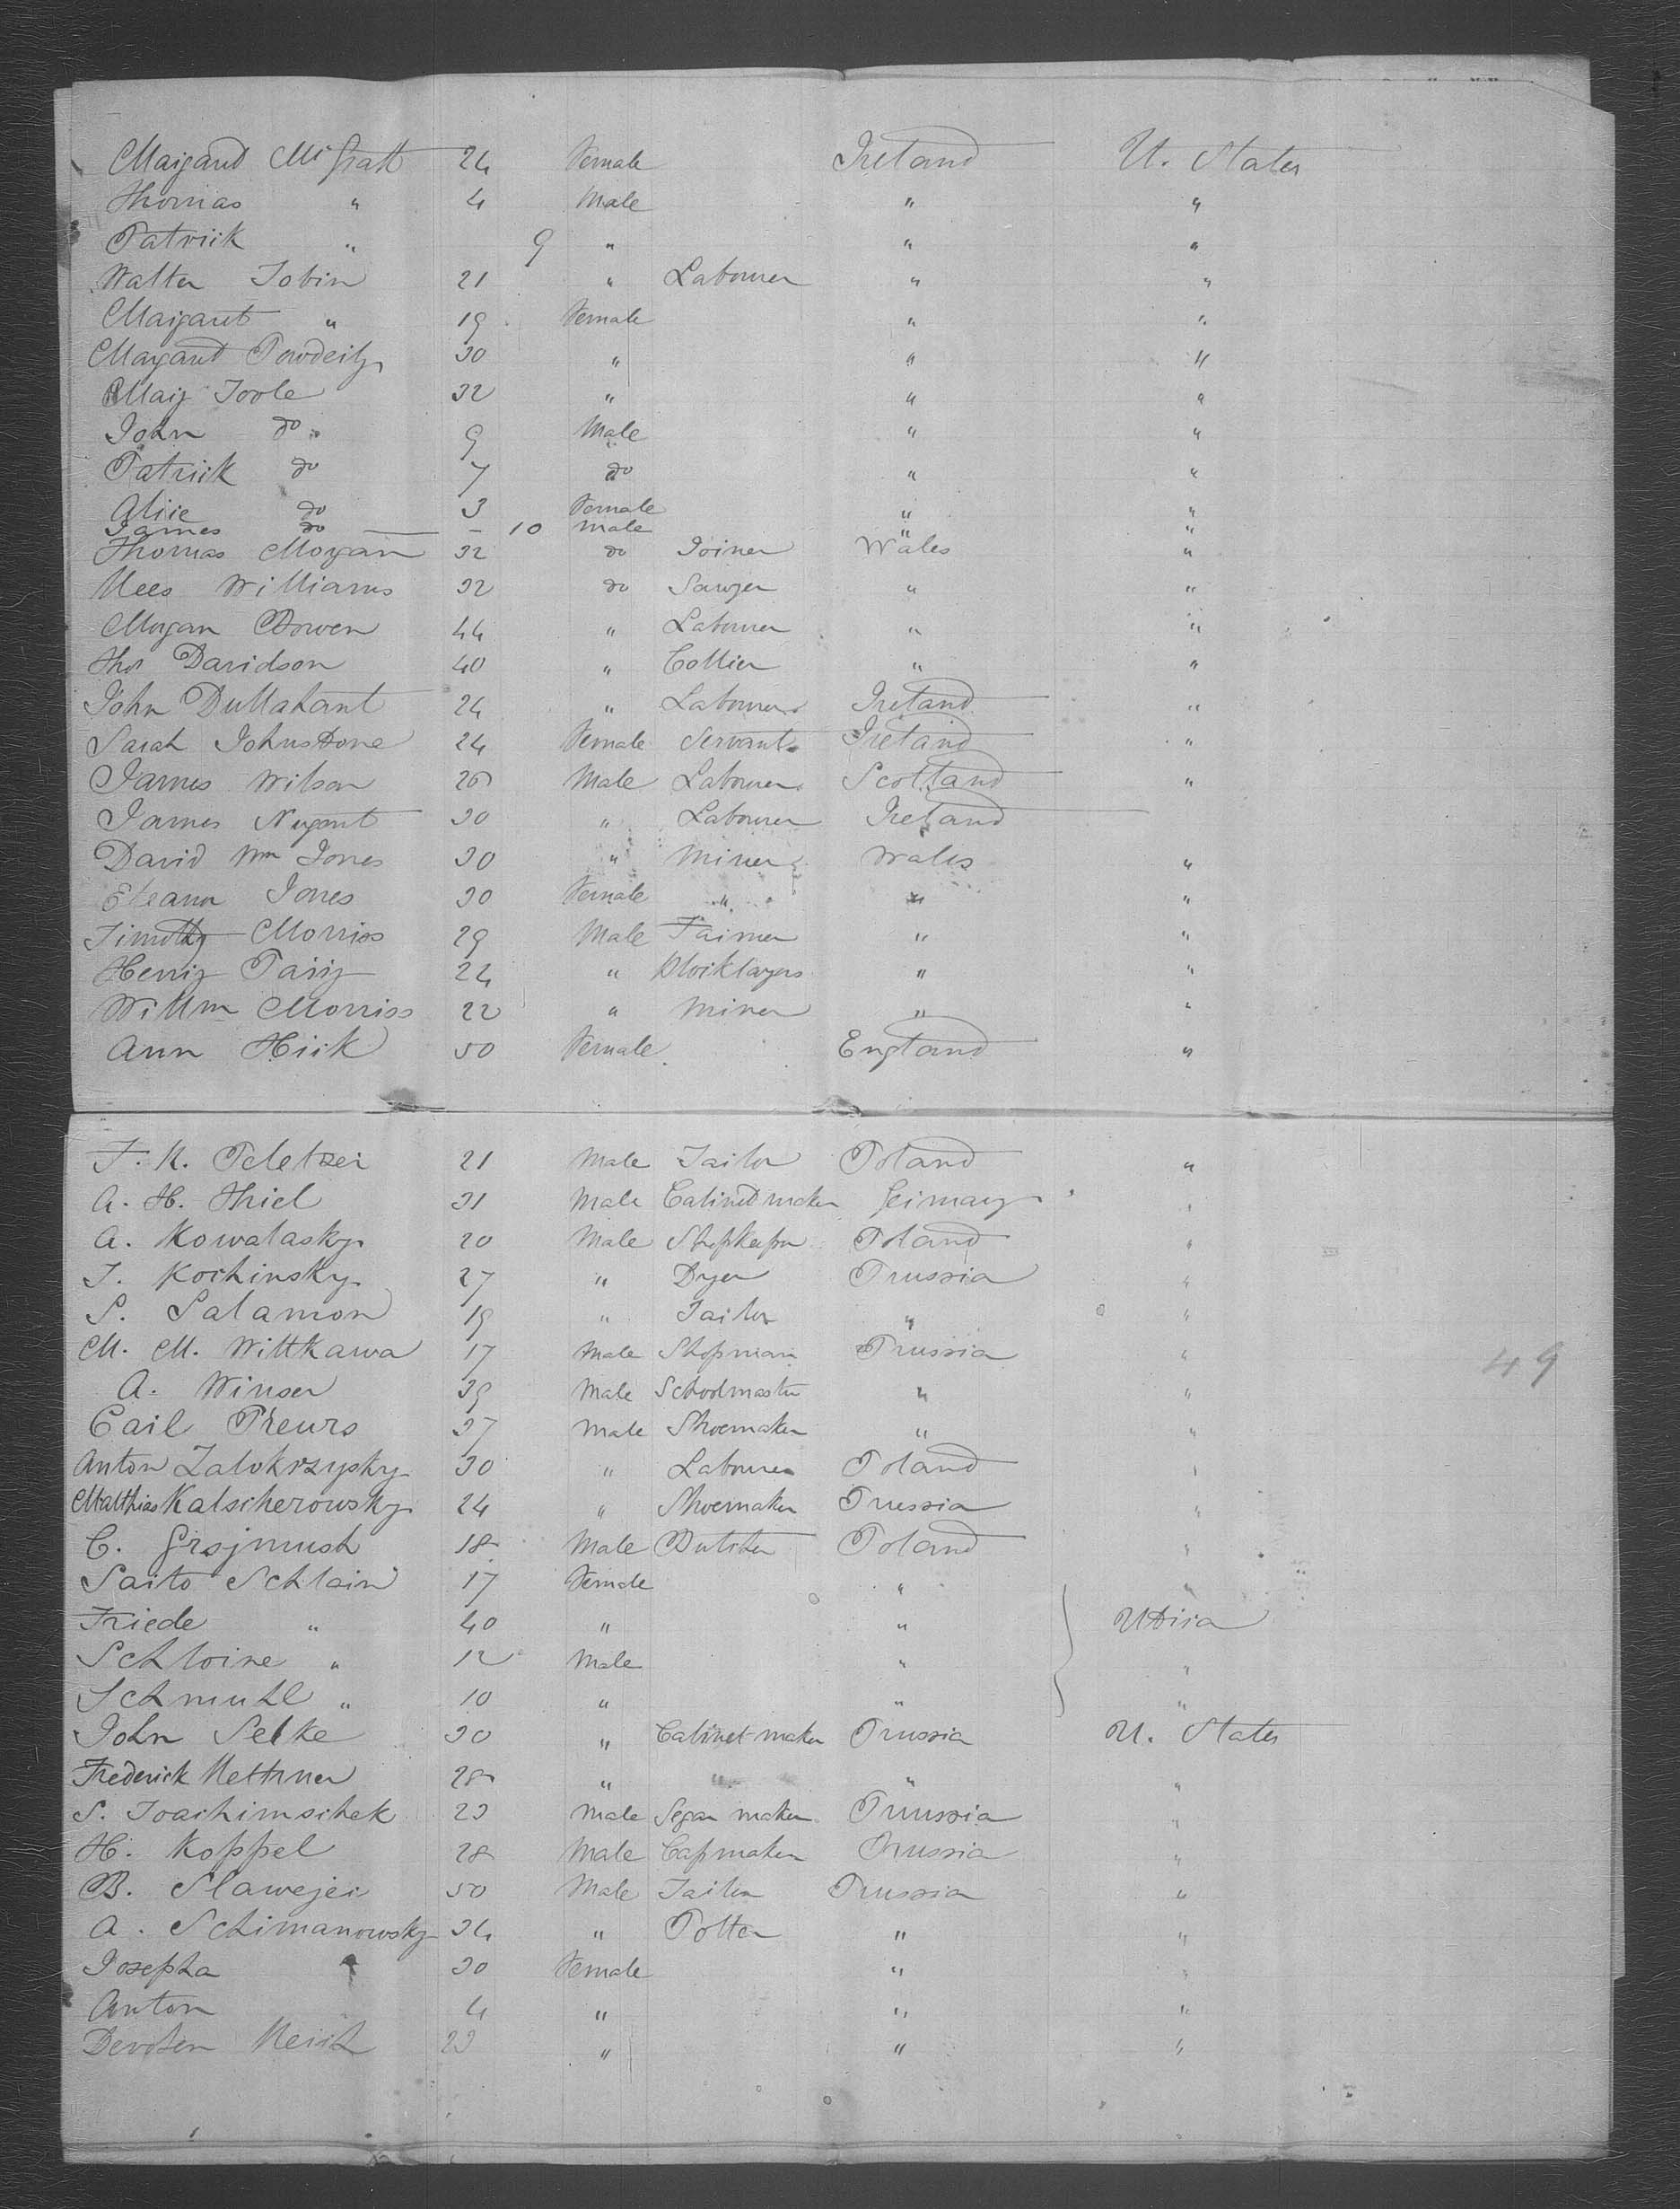 Margaret McGratt 24 Female Ireland U. States
Thomas " 4 Male " "
Patrick " 9 " " "
Walter Tobin 21 " Labourer " "
Margaret " 19 Female " "
Margaret 30 " " "
Mary Toole 32 " " "
John do 9 Male " "
Patrick do 7 do " "
Alice do 3 Female " "
James do — 10 male " "
Thomas Morgan 32 do Joiner Wales "
Rees Williams 32 do Sawyer " "
Morgan Bowen 44 " Labourer " "
Thos Davidson 40 " Collier " "
John Dullahant 24 " Labourer Ireland "
Sarah Johnstone 24 Female Servant Ireland "
James Wilson 26 Male Labourer Scotland "
James Nugent 30 " Labourer Ireland
David Wm Jones 30 " Miner Wales "
Eleanor Jones 30 Female " " "
Timothy Morriss 29 Male Farmer " "
Henry Parry 24 " Blocklayers " "
Willm Morriss 22 " Miner " "
Ann Hick 50 Female England "
F. R. Peletzer 21 Male Tailor Poland "
A. H. Thiel 31 Male Cabinetmaker Germany "
A. Kowalasky 20 Male Shopkeeper Poland "
J. Kochinsky 27 " Dyer Prussia "
S. Salamon 19 " Tailor " "
M. M. Wittkawa 17 Male Shopman Prussia "
49
A. Winser 39 Male Schoolmaster " "
Carl Preuss 37 Male Shoemaker " "
Anton Zalokrzysky 30 " Labourer Poland "
Matthias Kalscherowsky 24 " Shoemaker Prussia "
C. Grsjmush 18 Male Butcher Poland "
Saito Schlain 17 Female " "
Friede " 40 " " Utica
Schloine " 12 Male " "
Schmuhl " 10 " " "
John Selke 30 " Cabinet-maker Prussia U. States
Frederick Methner 28 " " " "
S. Joachimschek 23 Male Segar maker Prussia "
H. Koppel 28 Male Capmaker Prussia "
B. Slawejei 50 Male Tailor Prussia "
A. Schimanowsky 34 " Potter " "
Josepha " 30 Female " "
Anton 4 " " "
Reich 23 " " "